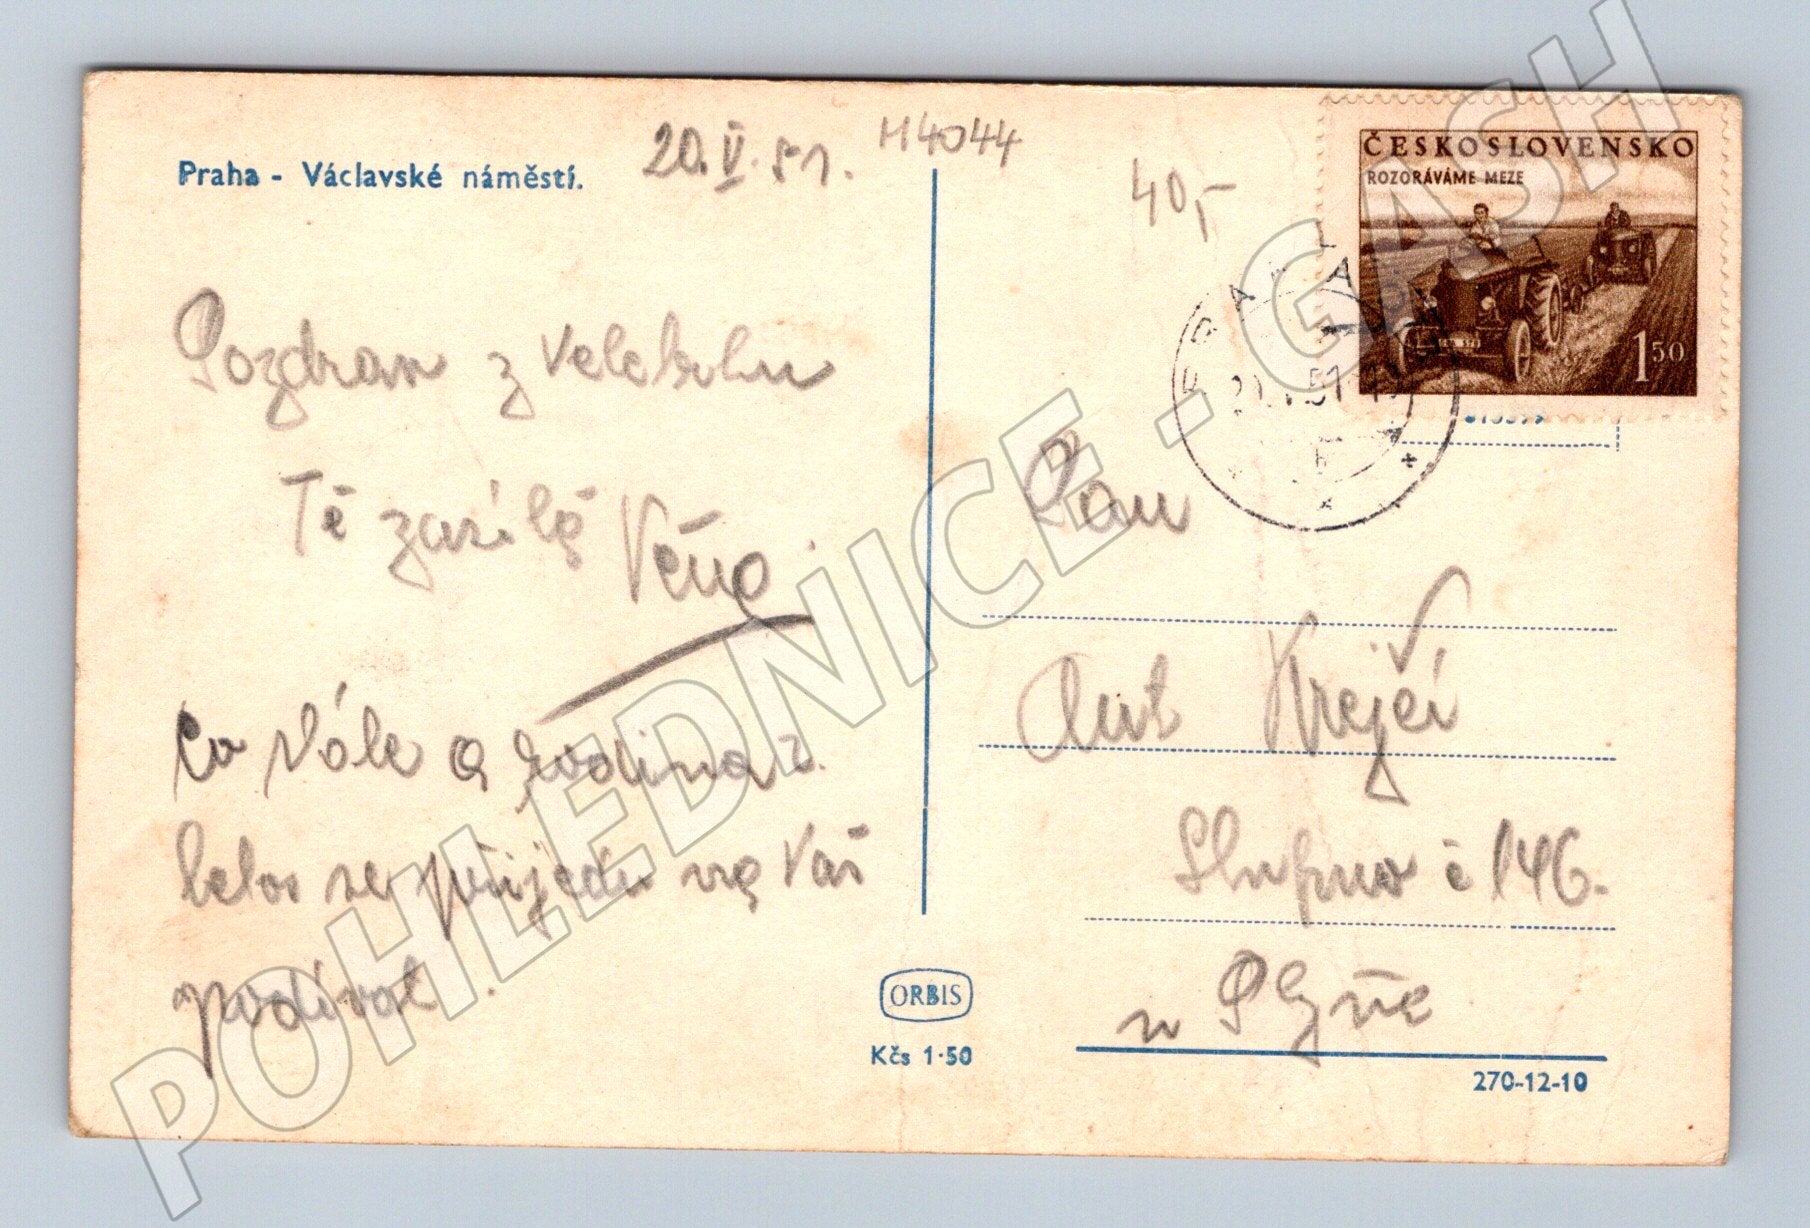 Praha - Václavské náměstí.
20.V.51.
M4044
40,-
ČESKOSLOVENSKO
ROZORÁVÁME MEZE
1 50
Pozdrav z Veletrhu
Tě zasílá Véna
Co Vále a rodina?
letos se přijedu na Vás
podívat.
Pan
Ant Krejčí
Slupno č 146.
u
ORBIS
Kčs 1·50
270-12-10
POHLEDNICE - GASH